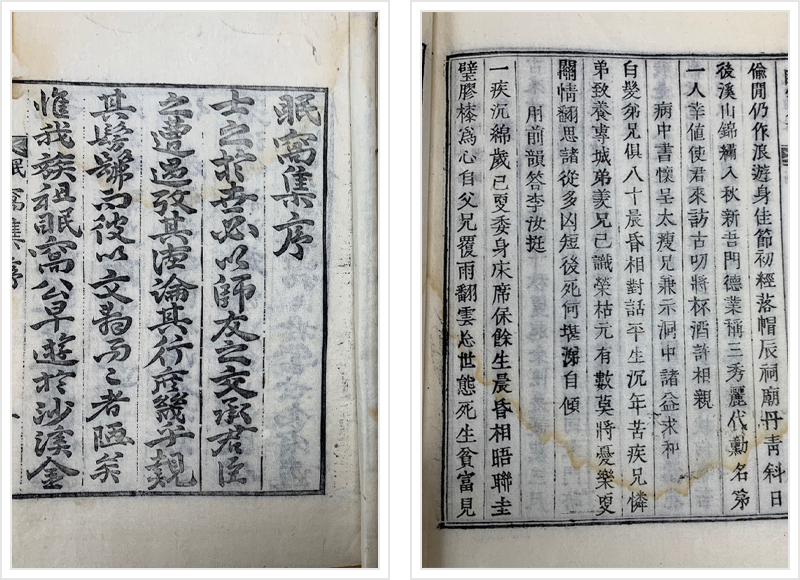 眠窩集序
士之於世必以師友之交承君臣
之遭遇攷其論其行庶幾乎覿
其髣髴而彼以文而者陋矣
惟我族祖眠窩公早遊於沙溪金
眠窩集序
一
偷閒仍作浪遊身佳節初經落帽辰祠廟丹靑科日
後溪山錦繡入秋新吾門德業稱三秀麗代勳名第
一人幸値使君來訪古叨將杯酒許相親
病中書懷呈太瘦兄兼示洞中諸益求和
白髮弟兄俱八十晨昏相對話平生沉年苦疾兄憐
弟致養專城弟羨兄已識榮枯元有數莫將憂樂更
關情翻思諸從多凶短後死何堪淚自傾
用前韻答李汝挺
一疾沉綿歲已更委身床席保餘生晨昏相晤聯圭
璧膠漆爲心自父兄覆雨翻雲忩世態死生貧富見